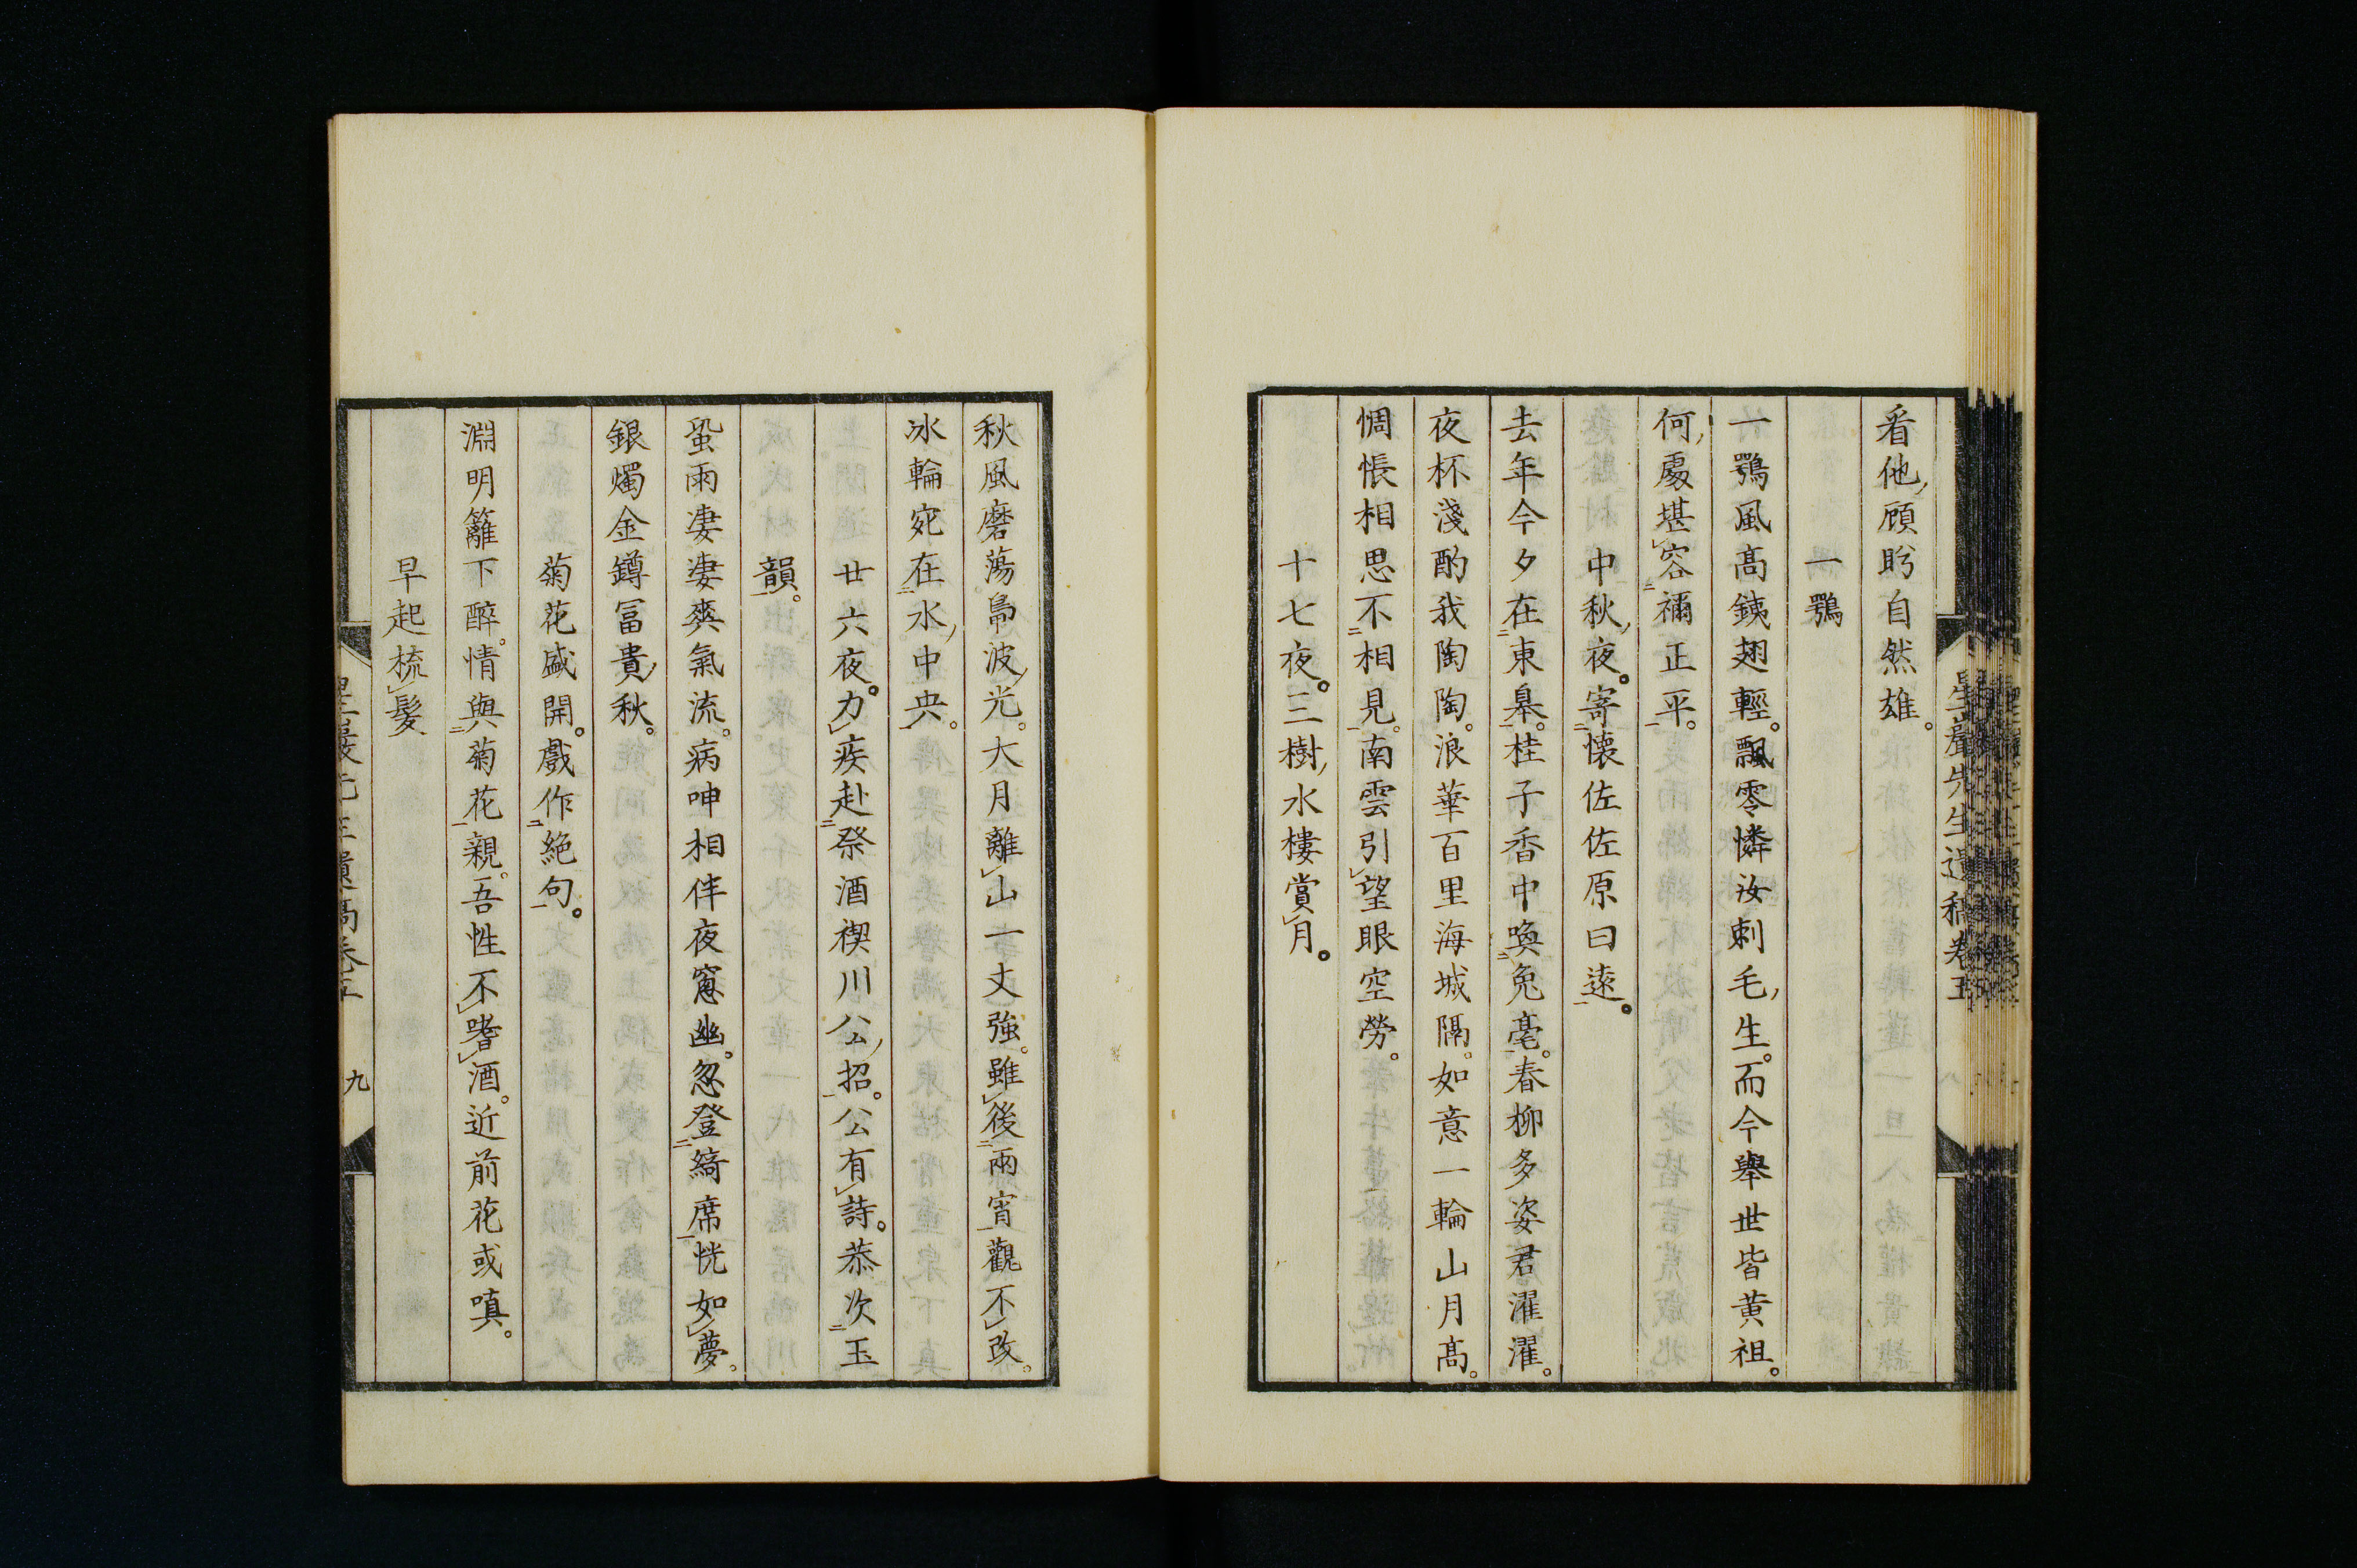 看他顧盻自然雄。
一鶚
一鶚風高銕翅輕。飄零憐汝刺毛生。而今舉世皆黄祖。
何處堪容禰正平。
中秋夜。寄懐佐佐原曰遠。
去年今夕在東臯。桂子香中喚兔毫。春柳多姿君濯濯。
夜杯淺酌我陶陶。浪華百里海城隔。如意一輪山月高。
惆悵相思不相見。南雲引望眼空勞。
十七夜。三樹水樓賞月。
星巖先生遺稿卷五
秋風磨蕩鳧波光。大月離山一丈強。雖後兩宵觀不改。
冰輪宛在水中央。
廿六夜。力疾赴祭酒禊川公招。公有詩。恭次玉
韻。
蛩雨凄凄爽氣流。病呻相伴夜窻幽。忽登綺席恍如夢。
銀燭金鐏冨貴秋。
菊花盛開。戲作絶句。
淵明籬下醉。情與菊花親。吾性不嗜酒。近前花或嗔。
早起梳髮
星巖先生遺稿卷五 九